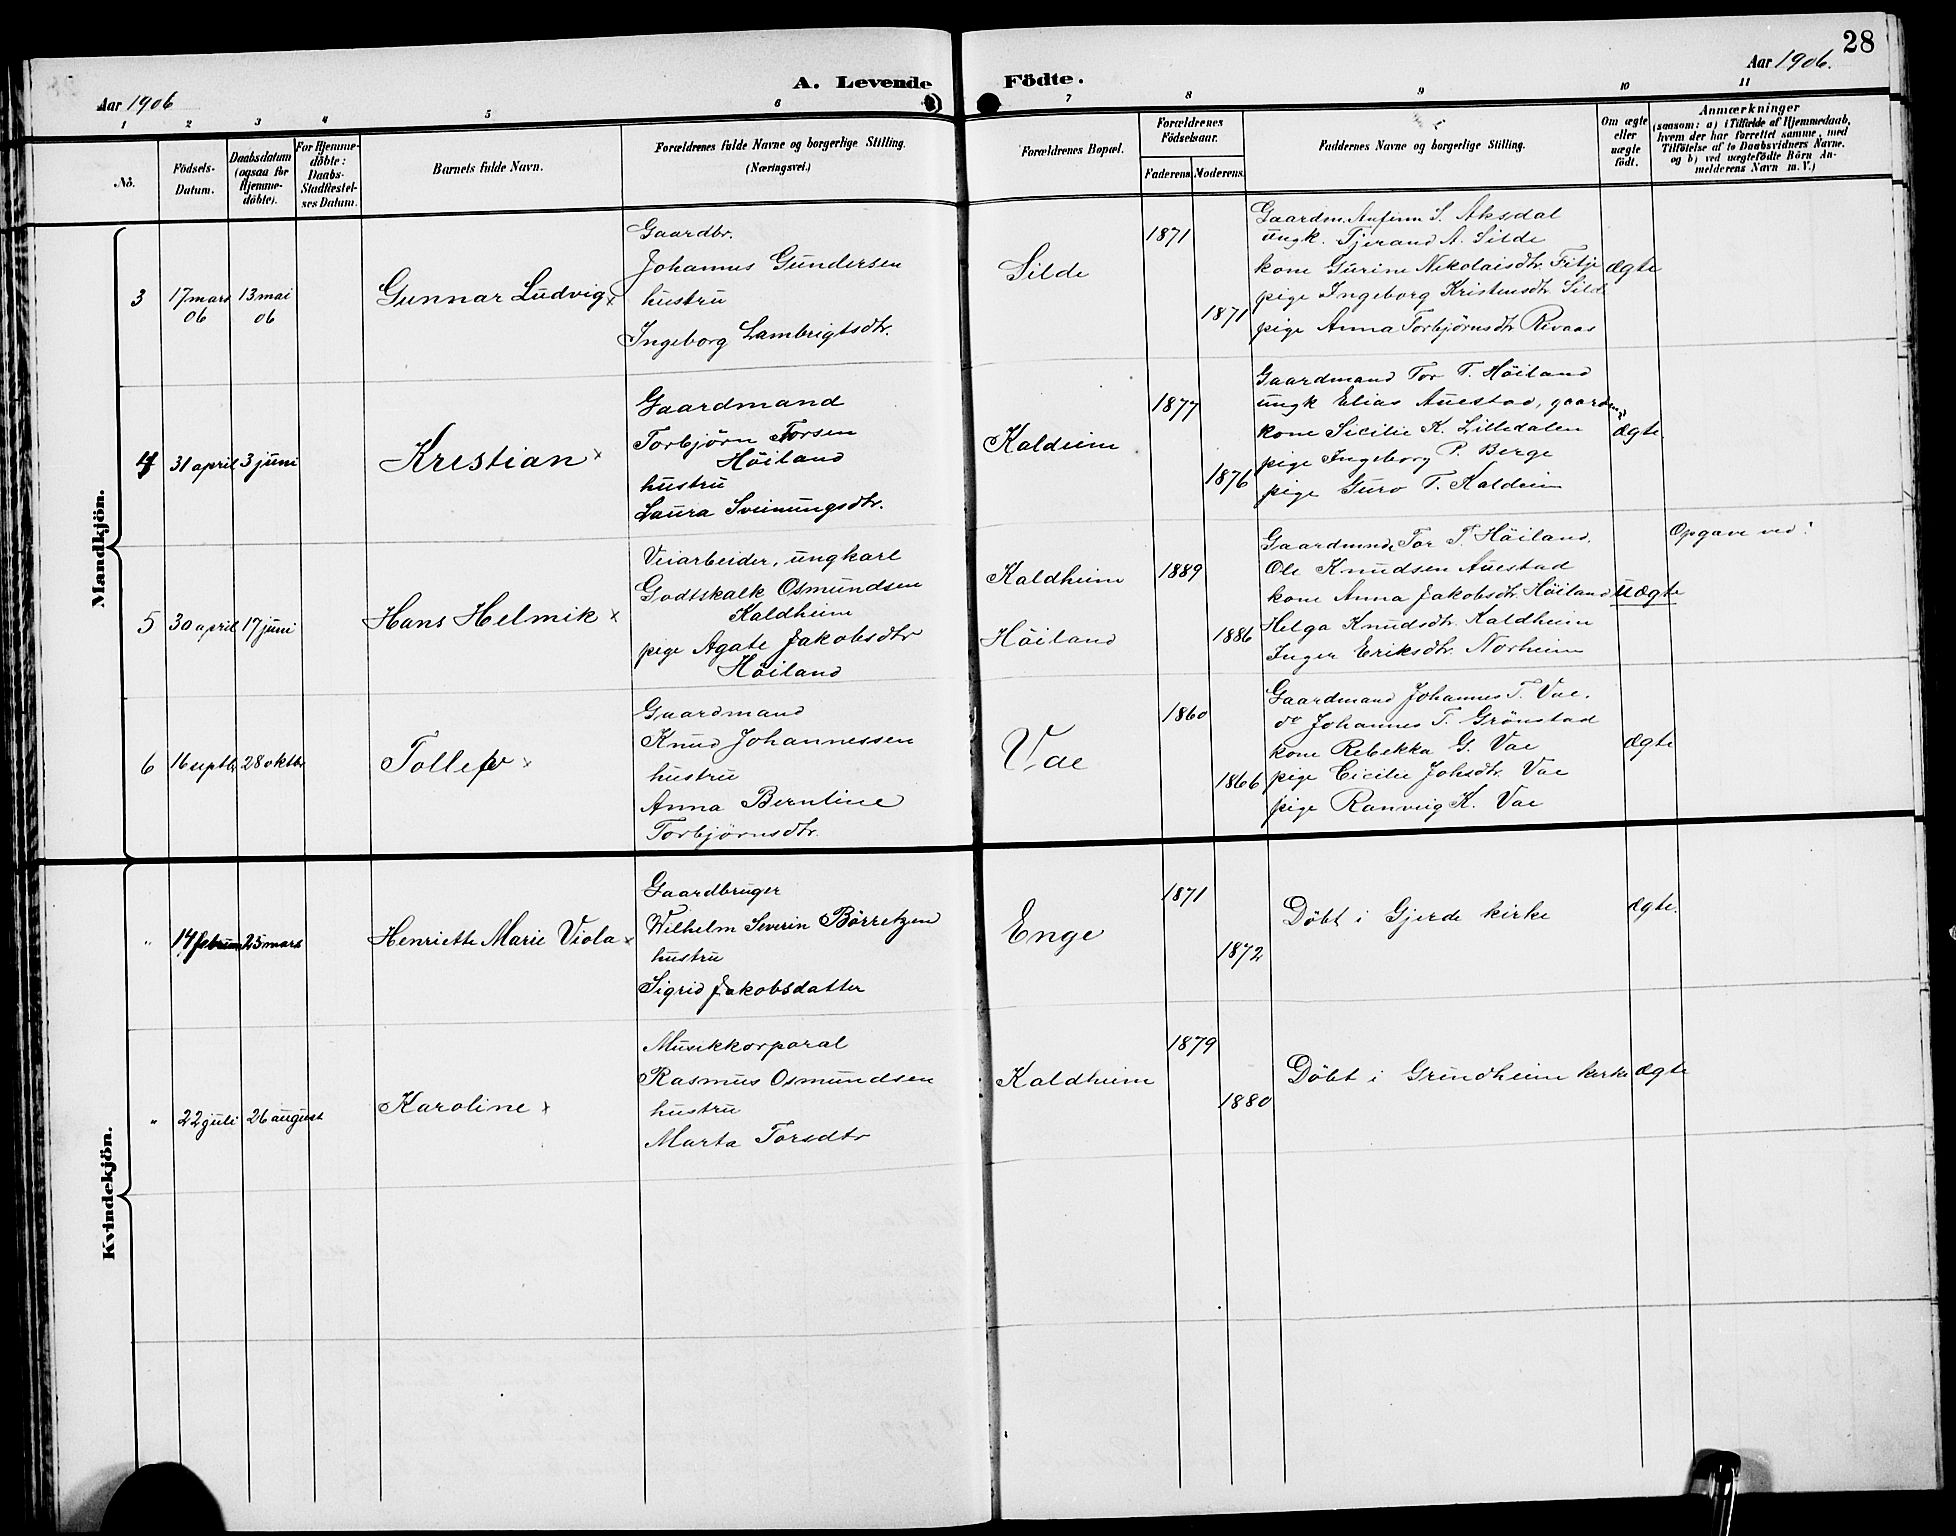 28
Aar 1906
A. Levende Födte.
Aar 1906.
1 2 3 4 5 6 7 8 9 10 11
No.
Födsels-
Datum.
Daabsdatum
(ogsaa for
Hjemme-
døbte).
For Hjemme-
döbte:
Daabs-
Stadfæstel-
ses Datum.
Barnets fulde Navn.
Forældrenes fulde Navne og borgerlige Stilling.
(Næringsvei.)
Forældrenes Bopæl.
Forældrenes
Födselsaar.
Faderens. Moderens.
Faddernes Navne og borgerlige Stilling.
Om ægte
eller
uægte
födt.
Anmærkninger
(saasom: a) i Tilfælde af Hjemmedaab,
hvem der har forrettet samme, med
Tilföielse af to Daabsvidners Navne.
og b) ved uægtefödte Börn An-
melderens Navn m. V.)
Mandkjön.
3
17 mars
06
13 mai
06
Gunnar Ludvig x
Gaardbr.
Johannes Gundersen
hustru
Ingeborg Lambrigtsdtr.
Silde
1871
1871
Gaardm. Anfinn S. Aksdal
ungk. Tjerand A. Silde
kone Gurine Nikolaisdtr. Fitje
pige Ingeborg Kristensdtr. Silde
pige Anna Torbjörnsdtr Revaas
ægte
4
31 april
3 juni
Kristian x
Gaardmand
Torbjörn Torsen
Höiland
hustru
Laura Sveinungsdtr.
Kaldeim
1877
1876
Gaardmand Tor T. Höiland
ungk Elias Auestad, gaardm.
kone Sicilie K. Lilledalen
pige Ingeborg P. Berge
pige Guro T. Kaldeim
ægte
5
30 april
17 juni
Hans Helmik x
Veiarbeider, ungkarl
Godtskalk Osmundsen
Kaldheim
pige Agate Jakobsdtr
Höiland
Kaldheim
Höiland
1889
1886
Gaardmand Tor T. Höiland.
Ole Knudsen Auestad
kone Anna Jakobsdtr. Höiland
Helga Knudsdtr. Kaldheim
Inger Eriksdtr. Norheim
uægte
Opgave ved:
6
16 septbr
28 oktbr
Tollef x
Gaardmand
Knud Johannessen
hustru
Anna Berntine
Torbjørnsdtr.
Vae
1860
1866
Gaardmand Johannes T. Vae.
do Johannes T. Grönstad
kone Rebekka G. Vae
pige Cicilie Johsdtr. Vae
pige Ranveig K. Vae
ægte
Kvindekjön.
"
14 februar
25 mars
Henriette Marie Viola x
Gaardbruger
Wilhelm Severin Börretzen
hustru
Sigrid Jakobsdatter
Enge
1871
1872
Döbt i Gjerde kirke
ægte.
"
22 juli
26 august
Karoline x
Musikkorporal
Rasmus Osmundsen
hustru
Marta Torsdtr
Kaldheim
1879
1880
Döbt i Grindheim kirke
ægte